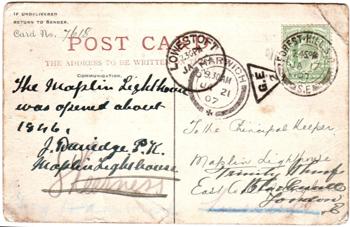 IF UNDELIVERED
RETURN TO SENDER.
Card No. 7618
POST CARD
THE ADDRESS TO BE WRITTEN
COMMUNICATION.
The Maplin Lighthouse
was opened about
1846.
J. Davidge P.K.
Maplin Lighthouse
LOWESTOFT
HARWICH
9.30AM
JA 21
07
G.E
2
FOREST-HILL
S.E.
To the Principal Keeper,
Maplin Lighthouse
Trinity Wharf
East
Blackwall
London
E